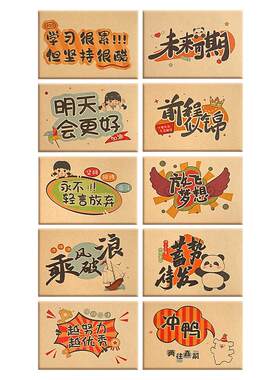 学习很累!!!
但坚持很酷
未来可期
明天
会更好
加油
前程
似锦
坚持
永不!!!
轻言放弃
放飞
梦想
乘风破浪
蓄势
待发
越努力
越优秀
冲鸭